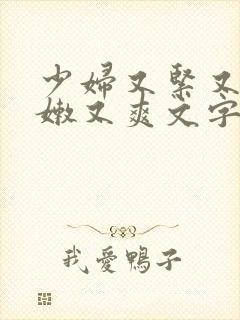 少婦又緊又
嫩又爽文字
我愛鴨子